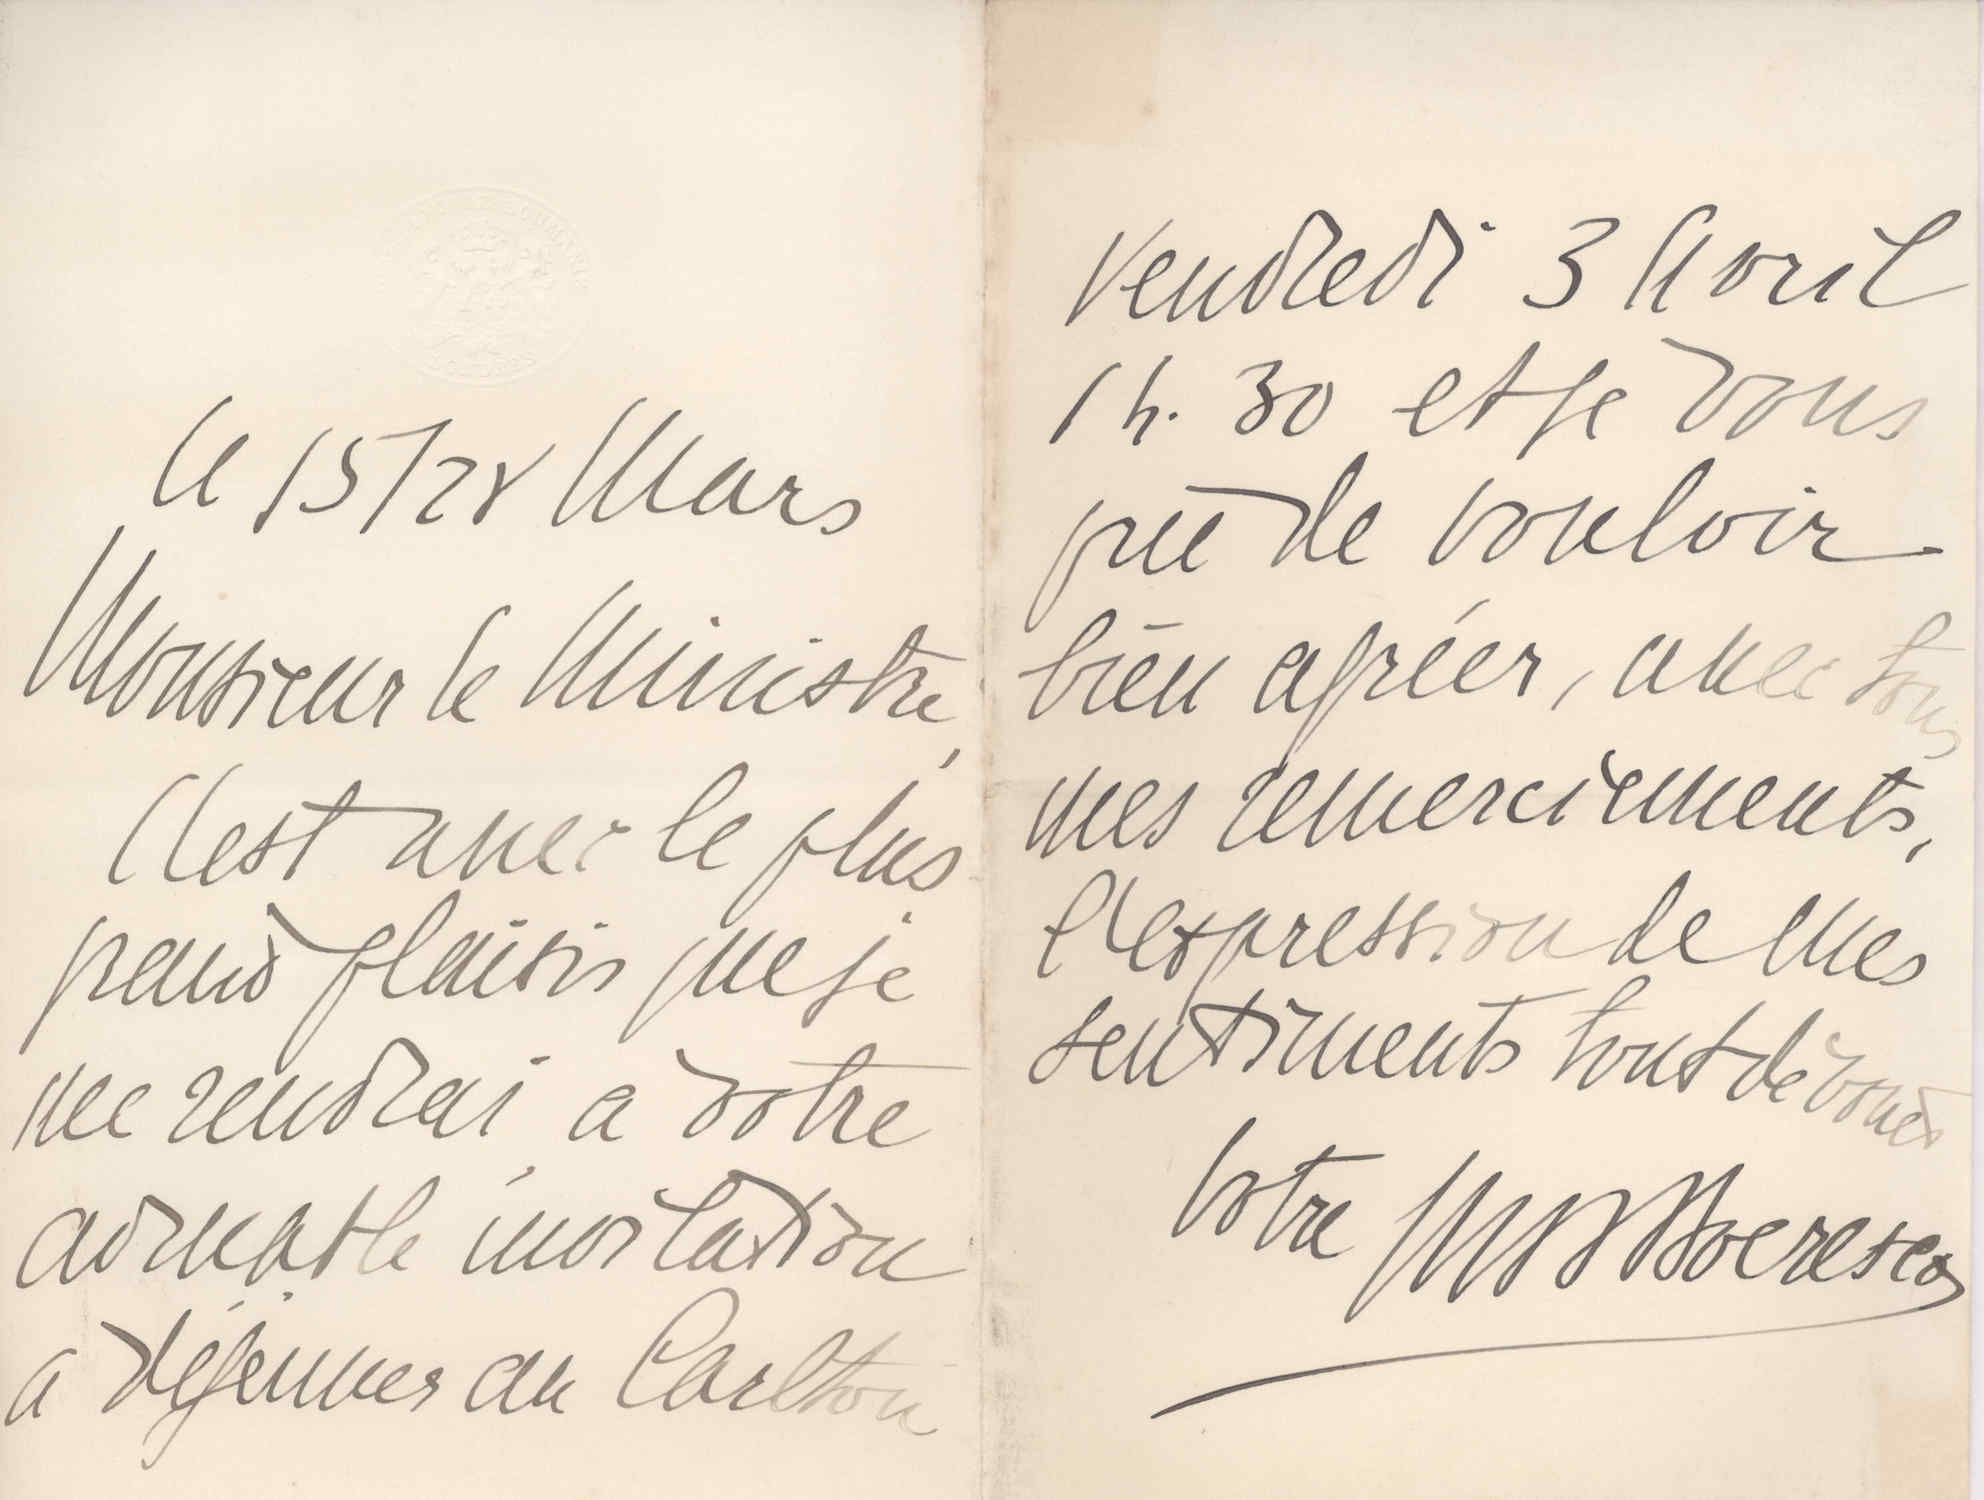 Le 15/28 Mars
Monsieur le Ministre,
C'est avec le plus
grand plaisir que je
me rendrai a votre
aimable invitation
a déjeuner au Carlton
Vendredi 3 Avril
1 h. 30 et je vous
prie de vouloir
bien agréer, avec tous
mes remerciements,
l'expression de mes
sentiments tout dévoués
Votre M B Boerescu